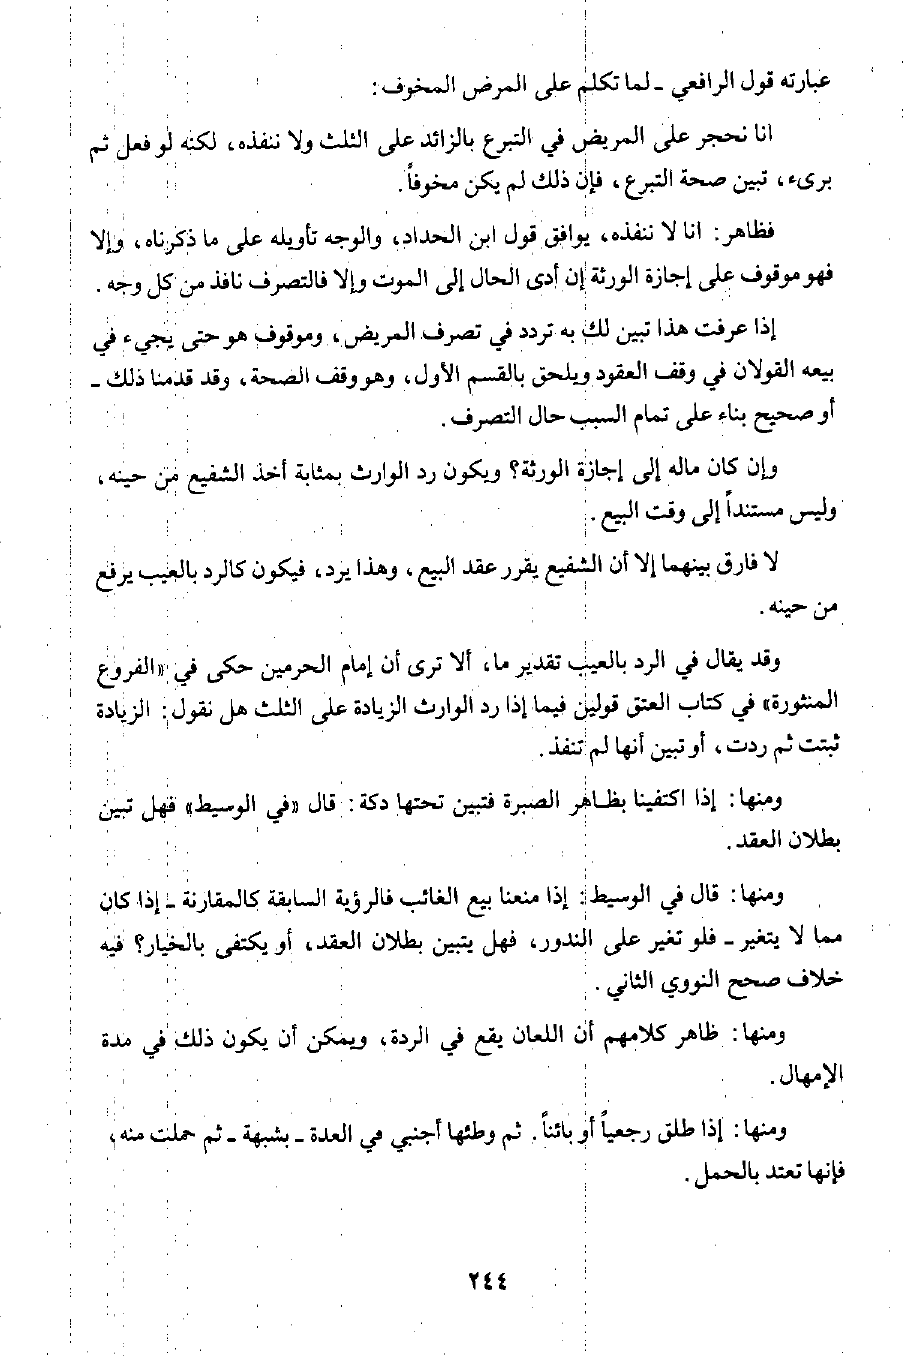 عبارته قول الرافعي ـ لما تكلم على المرض المخوف :
انا نحجر على المريض في التبرع بالزائد على الثلث ولا ننفذه، لكنه لو فعل ثم
برىء، تبين صحة التبرع، فإن ذلك لم يكن مخوفاً.
فظاهر : انا لا ننفذه، يوافق قول ابن الحداد، والوجه تأويله على ما ذكرناه، وإلا
فهو موقوف على إجازة الورثة إن أدى الحال إلى الموت وإلا فالتصرف نافذ من كل وجه .
إذا عرفت هذا تبين لك به تردد في تصرف المريض، وموقوف هو حتى يجيء في
بيعه القولان في وقف العقود ويلحق بالقسم الأول، وهو وقف الصحة، وقد قدمنا ذلك ـ
أو صحيح بناء على تمام السبب حال التصرف .
وإن كان ماله إلى إجازة الورثة؟ ويكون رد الوارث بمثابة أخذ الشفيع من حينه،
وليس مستنداً إلى وقت البيع .
لا فارق بينهما إلا أن الشفيع يقرر عقد البيع، وهذا يرد، فيكون كالرد بالعيب يرفع
من حينه .
وقد يقال في الرد بالعيب تقدير ما، ألا ترى أن إمام الحرمين حكى في «الفروع
المنثورة» في كتاب العتق قولين فيما إذا رد الوارث الزيادة على الثلث هل نقول : الزيادة
ثبتت ثم ردت، أو تبين أنها لم تنفذ .
ومنها : إذا اكتفينا بظاهر الصبرة فتبين تحتها دكة : قال «في الوسيط» فهل تبين
بطلان العقد .
ومنها : قال في الوسيط : إذا منعنا بيع الغائب فالرؤية السابقة كالمقارنة ـ إذا كان
مما لا يتغير ـ فلو تغير على الندور، فهل يتبين بطلان العقد، أو يكتفى بالخيار؟ فيه
خلاف صحح النووي الثاني .
ومنها : ظاهر كلامهم أن اللعان يقع في الردة، ويمكن أن يكون ذلك في مدة
الإمهال .
ومنها : إذا طلق رجعياً أو بائناً . ثم وطئها أجنبي في العدة ـ بشبهة ـ ثم حملت منه،
فإنها تعتد بالحمل .
٢٤٤